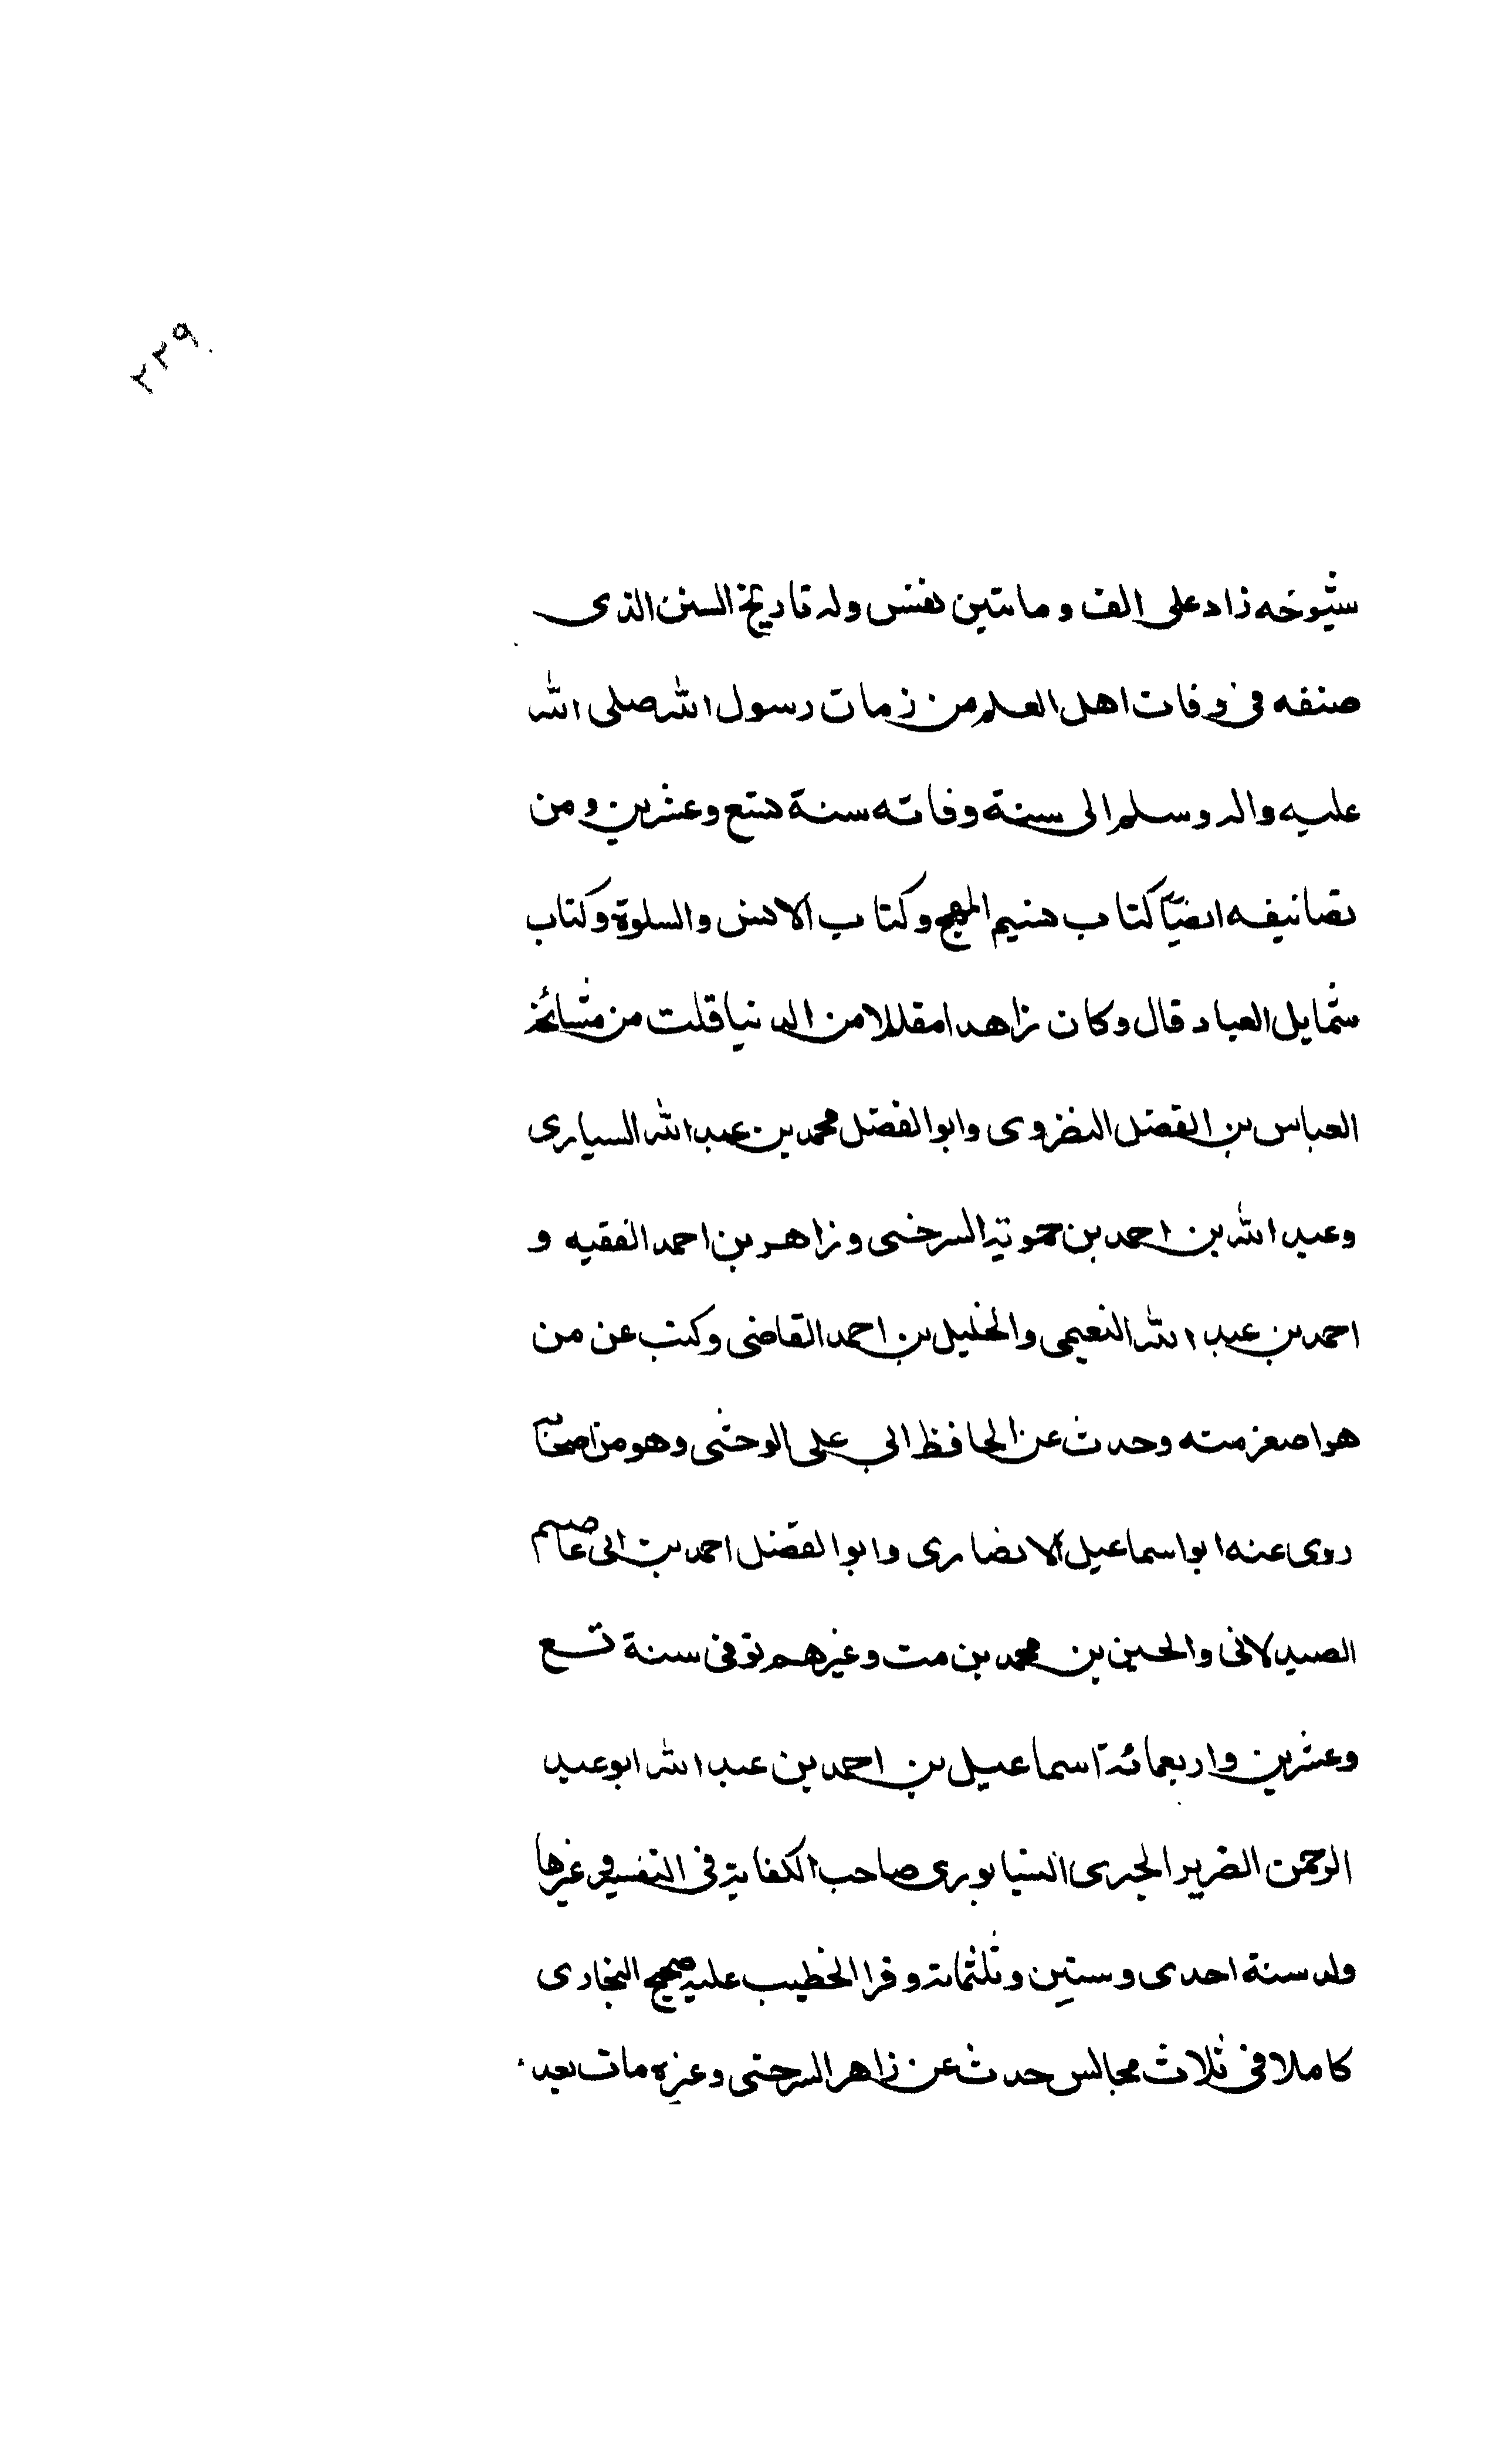 ٢٢٩
شيوخه زاد على الف و مائتين نفس وله تاريخ السنن الذى
صنفه فى وفات اهل العلم من زمات رسول الله صلى الله
عليه واله وسلم الى سنة وفاته سنة تسع وعشرين ومن
تصانيفه ايضاً كتاب نسيم المهج وكتاب الانس والسلوة وكتاب
شمايل العباد قال وكان زاهدا مقللا من الدنيا قلت من مشائخ
العباس بن الفضل النضروى وابو الفضل محمد بن عبد الله السيارى
وعبد الله بن احمد بن حمويه السرخسى وزاهر بن احمد الفقيه و
احمد بن عبد الله النعيمى والخليل بن احمد القاضى وكتب عن من
هو اصغر منه وحدث عن الحافظ ابى على الوخشى وهو من اصحابه
روى عنه ابو اسماعيل الانصارى وابو الفضل احمد بن ابى عاصم
الصيدلانى والحسين بن محمد بن مت وغيرهم توفى سنة تسع
وعشرين واربعمائة اسماعيل بن احمد بن عبد الله ابو عبد
الرحمن الضرير الجيرى النسيابورى صاحب الكفاية فى التفسير وغيرها
ولد سنة احدى وستين وثلثمائة وقرا الخطيب عليه صحيح البخارى
كاملا فى ثلاث مجالس حدث عن زاهر السرخسى وغيره مات بعد